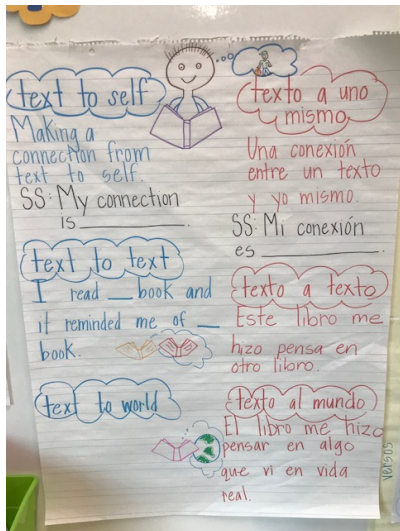 text to self
Making a
connection from
text to self.
SS: My connection
is ________.
text to text
I read __ book and
it reminded me of __
book.
text to world
texto a uno
mismo
Una conexión
entre un texto
y yo mismo.
SS: Mi conexión
es ________.
texto a texto
Este libro me
hizo pensa en
otro libro.
texto al mundo
El libro me hizo
pensar en algo
que vi en vida
real.
versos